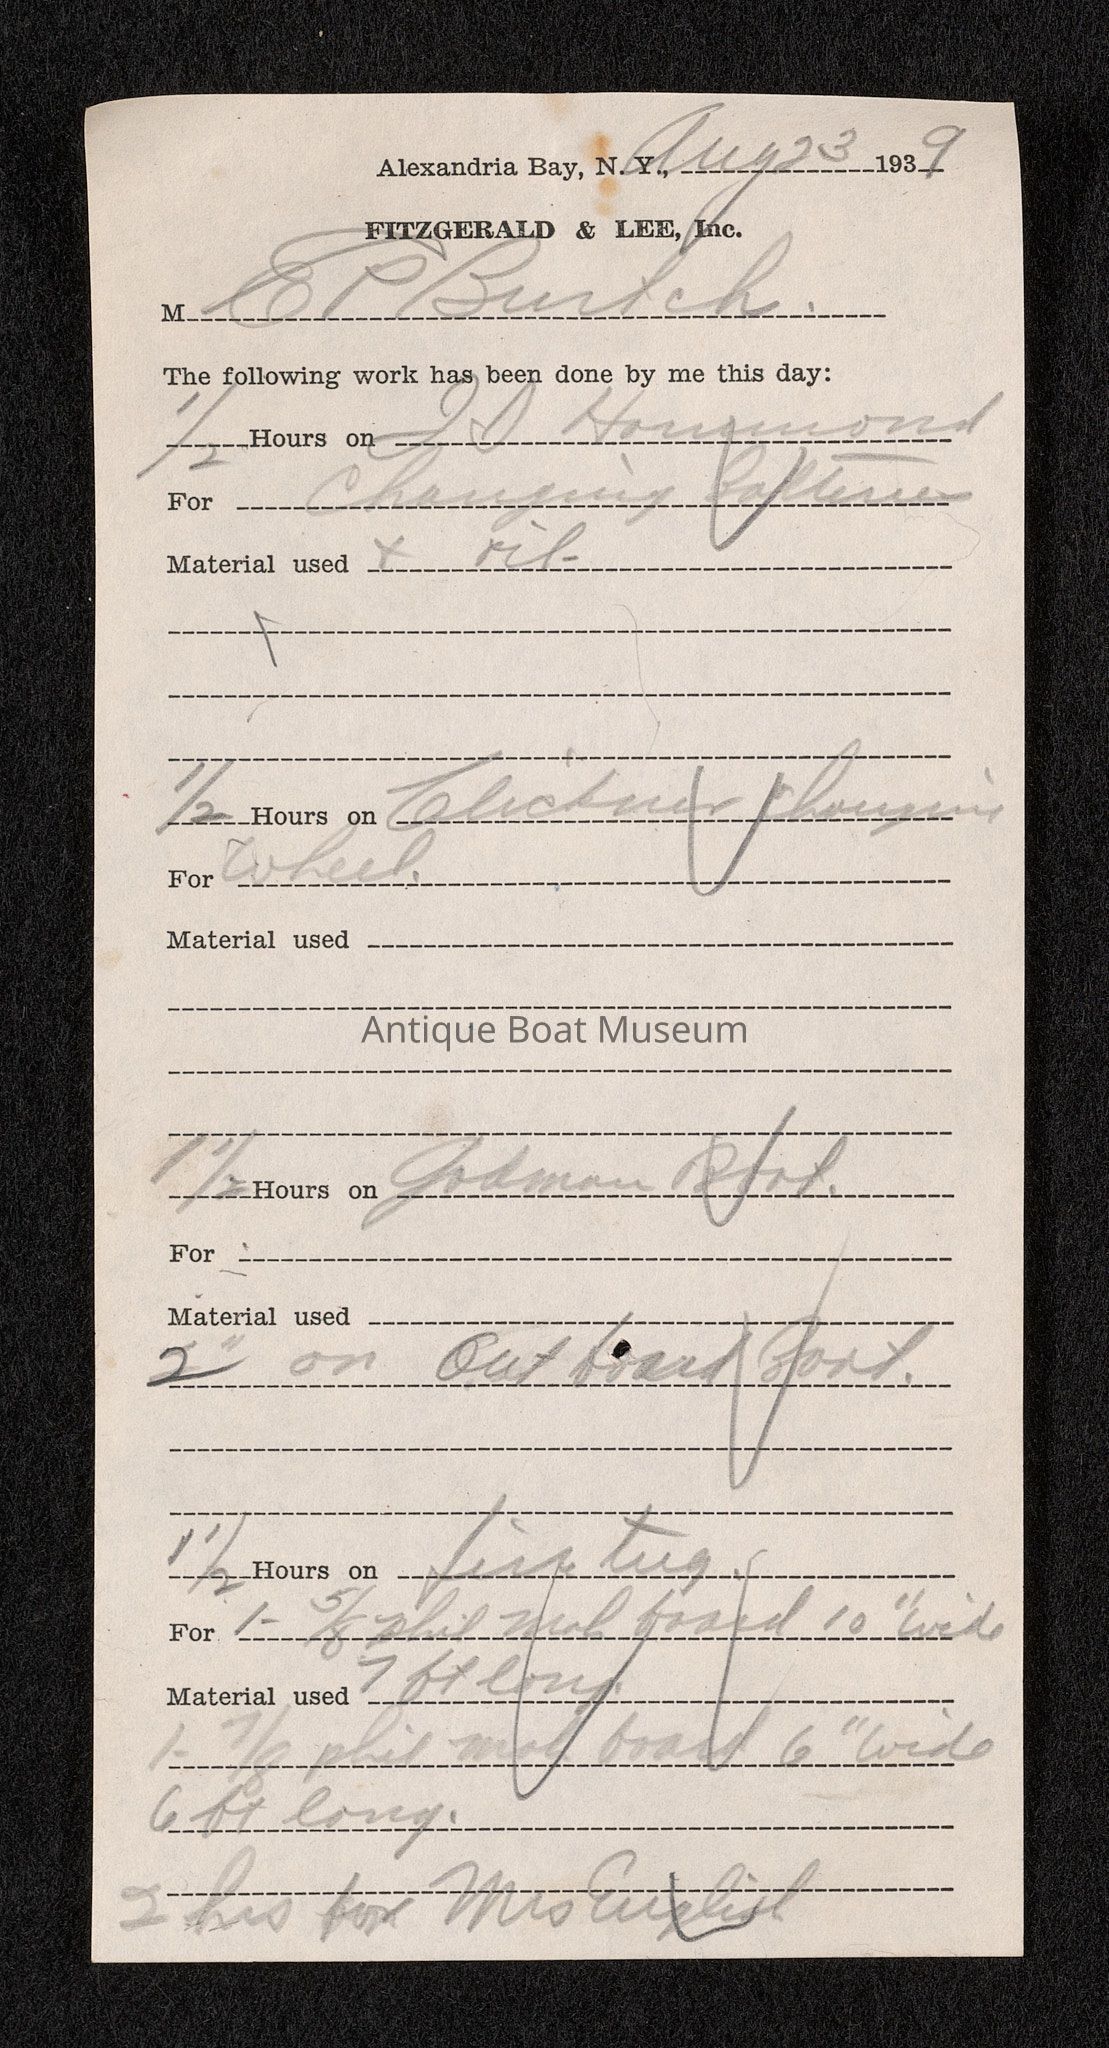 Alexandria Bay, N. Y., Aug 23 1939
FITZGERALD & LEE, Inc.
M E P Burtch.
The following work has been done by me this day:
1/2 Hours on J D Hammond
For Changing batteries
Material used + oil-
1/2 Hours on Clickner Changing
For Wheel.
Material used
Antique Boat Museum
1 1/2 Hours on Godman Boat.
For
Material used
2 " on Out board Boat.
1 1/2 Hours on fire tug.
For 1- 5/8 phil moh board 10 " wide
Material used 7 ft long.
1- 7/8 phil moh board 6 " wide
6 ft long.
2 hrs for Mrs English